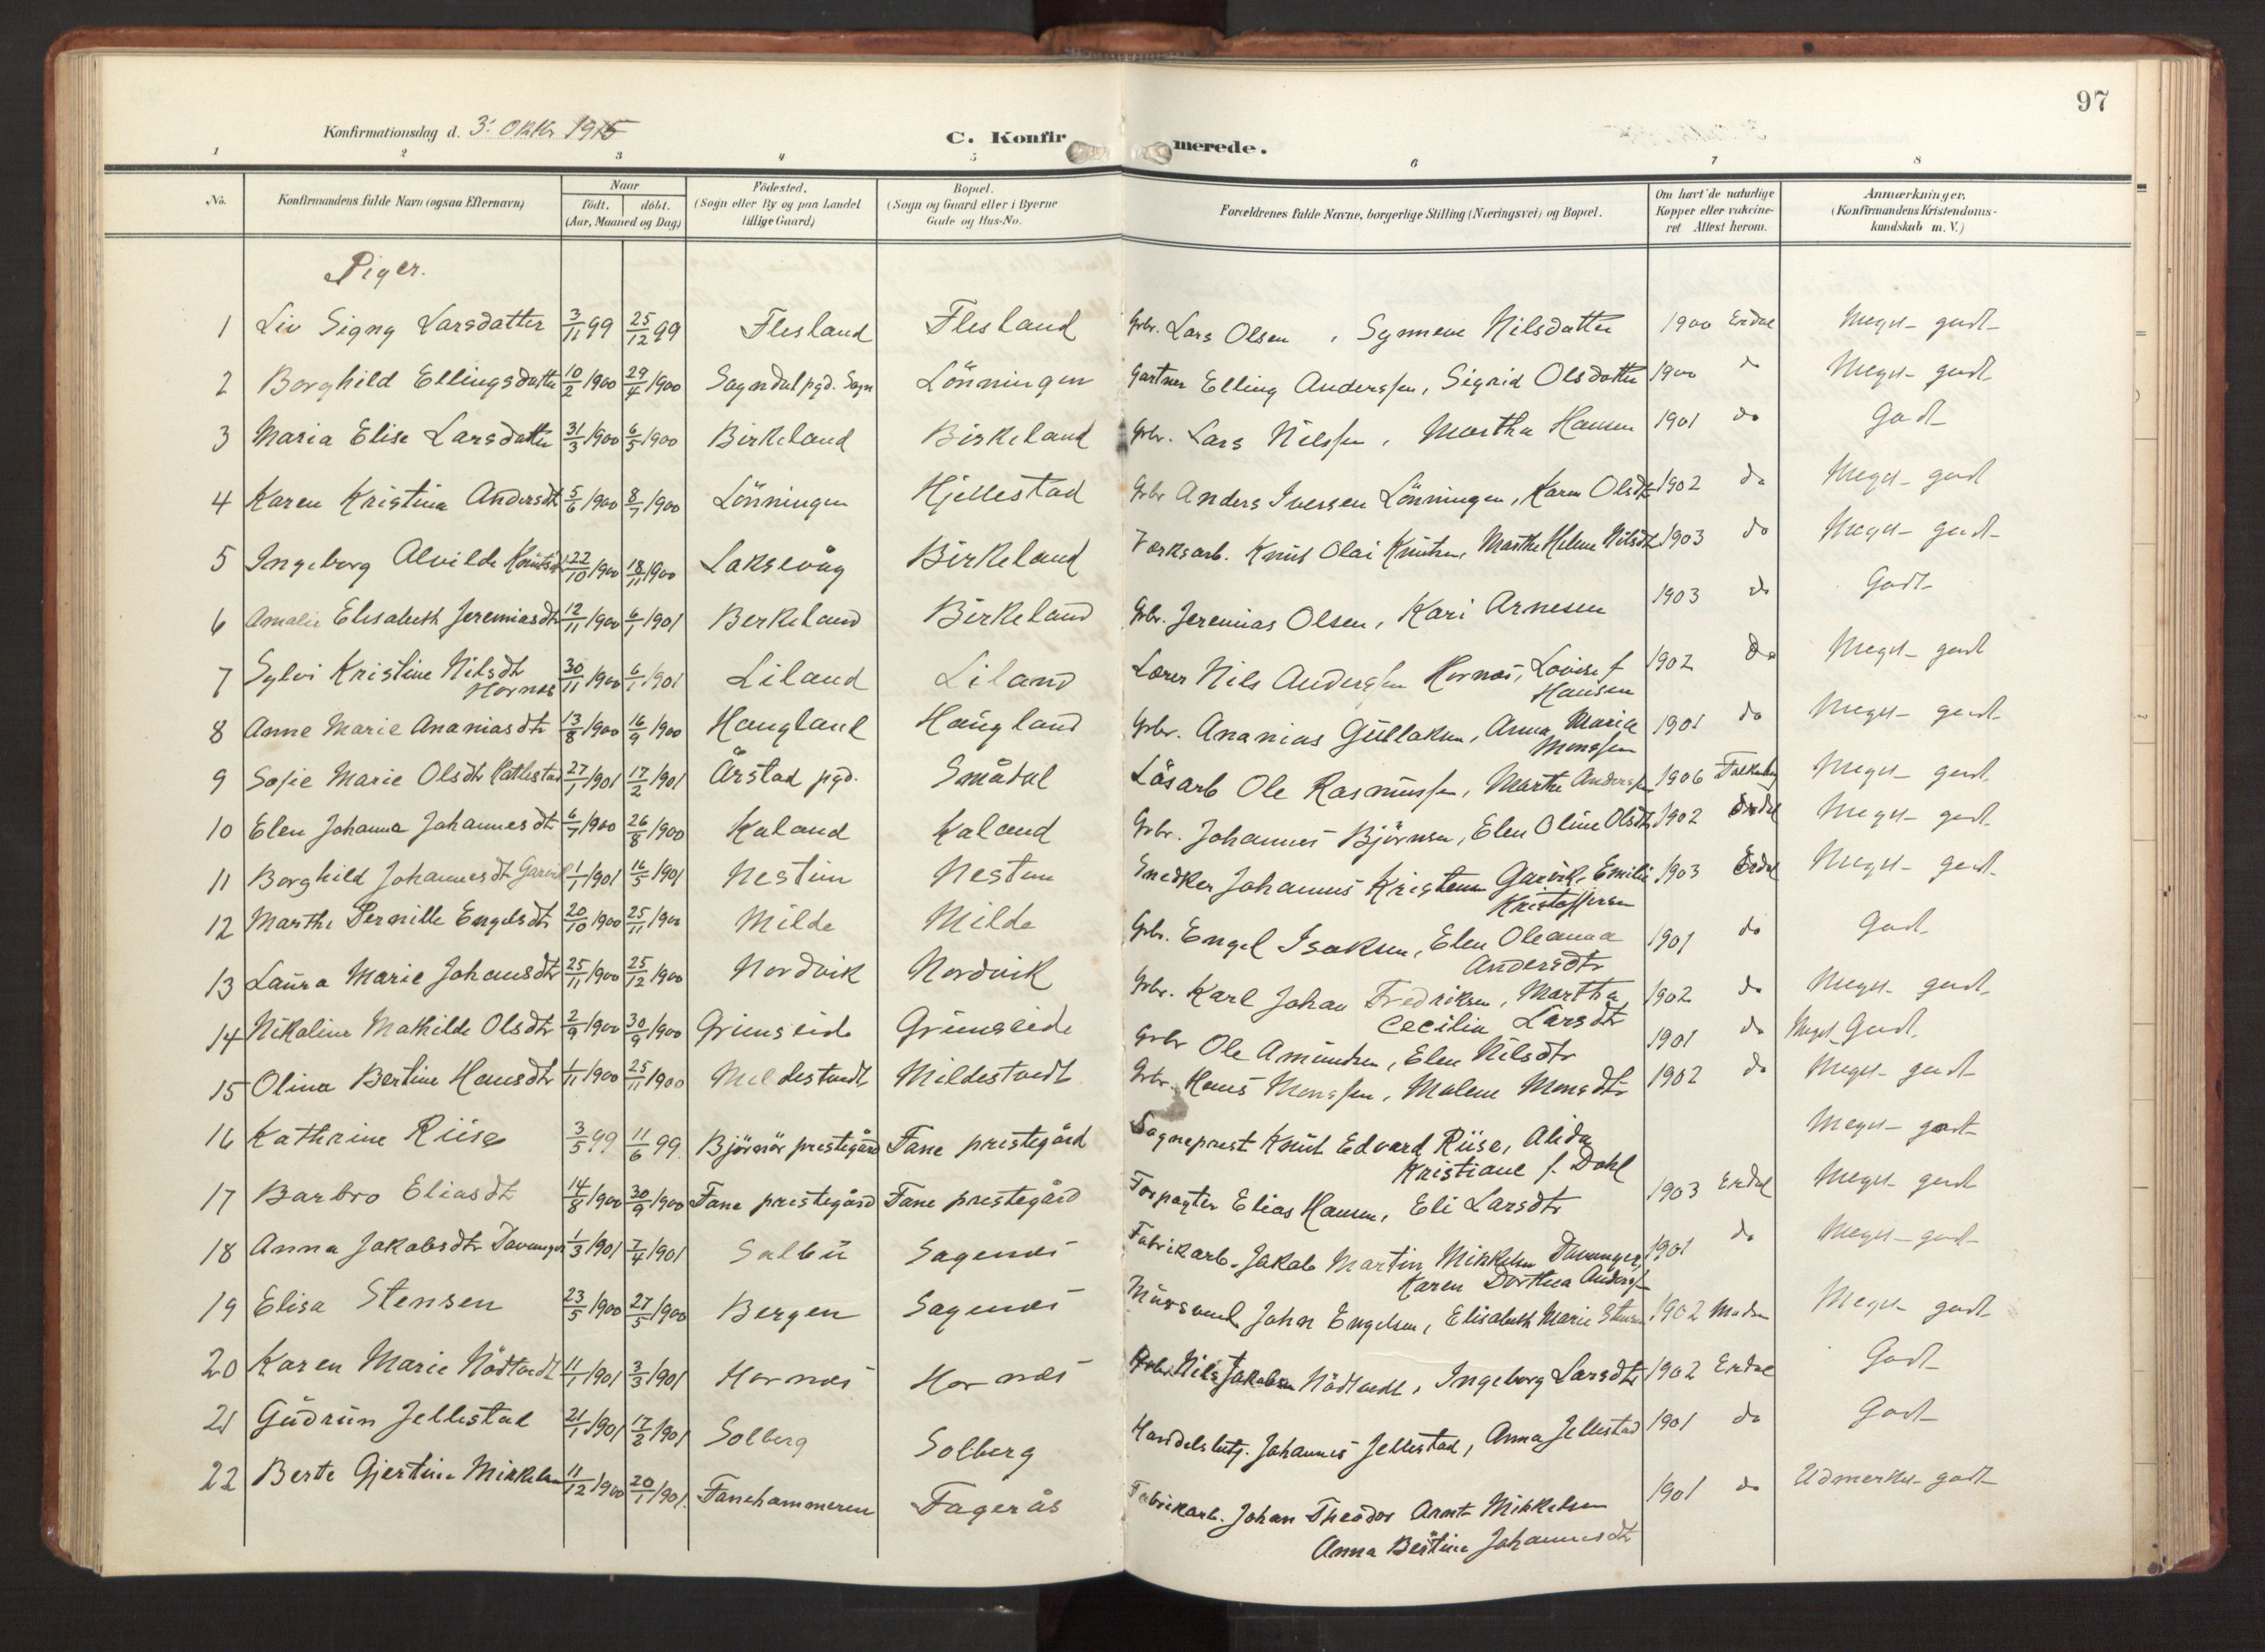 97
Konfirmationsdag d. 3: Oktbr 1915
C. Konfirmerede.
1 2 3 4 5 6 7 8
No. Konfirmandens fulde Navn (ogsaa Efternavn) Naar födt. döbt. (Aar, Maaned og Dag) Födested. (Sogn eller By og paa Landet tillige Gaard) Bopæl. (Sogn og Gaard eller i Byerne Gade og Hus-No. Forældrenes fulde Navne, borgerlige Stilling (Næringsvei) og Bopæl. Om havt de naturlige Kopper eller vakcineret Attest herom. Anmærkninger, (Konfirmandens Kristendomskundskab m. V.)
Piger.
1 Liv Signy Larsdatter 3/11 99 25/12 99 Flesland Flesland Gbr. Lars Olsen, Synneve Nilsdatter 1900 Erdal Meget godt
2 Borghild Ellingsdatter 10/2 1900 29/4 1900 Sogndal pgd. Sogn Lönningen Gartner Elling Anderssen, Sigrid Olsdatter 1900 do Meget godt
3 Maria Elise Larsdatter 31/3 1900 6/5 1900 Birkeland Birkeland Gbr. Lars Nilssen, Martha Hansen 1901 do Godt
4 Karen Kristina Andersdt 5/6 1900 8/7 1900 Lönningen Hjellestad Gbr Anders Iversen Lönningen, Karen Olsdtr 1902 do Meget godt
5 Ingeborg Alvilde Knutsdt 22/10 1900 18/11 1900 Laksevåg Birkeland Værksarb. Knut Olai Knutsen, Marthe Helene Nilsdtr 1903 do Meget godt
6 Amalie Elisabeth Jeremiasdtr 12/11 1900 6/1 1901 Berkeland Birkeland Gbr. Jeremias Olsen, Kari Arnesen 1903 do Godt
7 Sylvi Kristine Nilsdtr Hornæs 30/11 1900 6/1 1901 Liland Liland Lærer Nils Anderssen Hornæs, Lovise f Hansen 1902 do Meget godt
8 Anne Marie Ananiasdtr 13/8 1900 16/9 1900 Haugland Haugland Gbr. Ananias Gullaksen, Anna Maria Monssen 1901 do Meget godt
9 Sofie Marie Olsdtr Hatlestad 27/1 1901 17/2 1901 Årstad pgd. Smådal Lösarb Ole Rasmussen, Marthe Anderssen 1906 Meget godt
10 Elen Johanna Johannesdtr 6/7 1900 26/8 1900 Kaland Kaland Gbr. Johannes Björnsen, Elen Oline Olsdtr 1902 Erdal Meget godt
11 Borghild Johannesdtr Garvik 1/1 1901 16/5 1901 Nestun Nestun Snedker Johannes Kristensen Garvik, Emilie Kristoffersen 1903 Erdal Meget godt
12 Marthe Pernille Engelsdtr 20/10 1900 25/11 1900 Milde Milde Gbr. Engel Isaksen, Elen Oleanna Andersdtr 1901 do Godt
13 Laura Marie Johansdtr 25/11 1900 25/12 1900 Nordvik Nordvik Gbr. Karl Johan Fredriksen, Martha Cecilia Larsdtr 1902 do Meget godt
14 Nikoline Mathilde Olsdtr 2/9 1900 30/9 1900 Grimseide Grimseide Gbr Ole Amundsen, Elen Nilsdtr 1901 do Meget Godt
15 Olina Bertine Hansdtr 1/11 1900 25/11 1900 Mildestvedt Mildestvedt Gbr. Hans Monssen, Malene Monsdtr 1902 do Meget godt
16 Kathrine Riise 3/5 99 11/6 99 Björnör prestegård Fane prestegård Sogneprest Knut Edvard Riise, Alida Kristiane f. Dahl Meget godt
17 Barbro Eliasdtr 14/8 1900 30/9 1900 Fane prestegård Fane prestegård Forpagter Elias Hansen, Eli Larsdtr 1903 Erdal Meget godt
18 Anna Jakobsdtr Davanger 1/3 1901 7/4 1901 Salbu Sagenæs Fabrikarb. Jakob Martin Mikkelsen Davanger, Karen Dorthea Anderss 1901 do Meget godt
19 Elisa Stensen 23/5 1900 27/5 1900 Bergen Sagenæs Mursvend John Engelsen, Elisabeth Marie Stensen 1902 Madsen Meget godt
20 Karen Marie Nödtvedt 11/1 1901 3/3 1901 Hornæs Hornæs Gbr. Nils Jakobsen Nödtvedt, Ingeborg Larsdtr 1902 Erdal Godt
21 Gudrun Jellestad 21/1 1901 17/2 1901 Solberg Solberg Handelsbetj. Johannes Jellestad, Anna Jellestad 1901 do Godt
22 Berte Gjertine Mikkelsen 11/12 1900 20/1 1901. Fanehammeren Fagerås Fabrikarb. Johan Theodor Arnt Mikkelsen Anna Bertine Johannesdtr 1901 do Udmerket godt